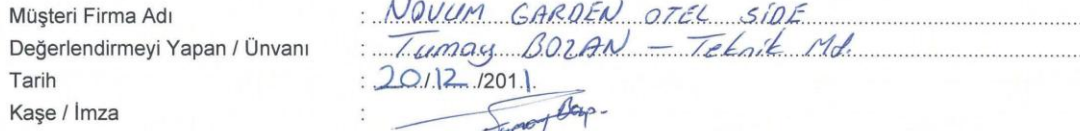 Müşteri Firma Adı : NOVUM GARDEN OTEL SİDE
Değerlendirmeyi Yapan / Ünvanı : Tumay BOZAN – Teknik Md.
Tarih : 20/12/2011.
Kaşe / İmza :